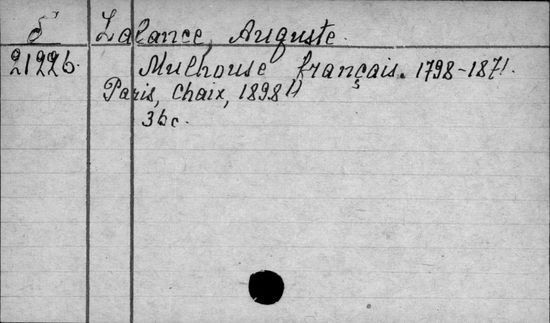 8° Lalance, Auguste.
21226. Mulhouse français. 1798-1871.
Paris, Chaix, 1898.
36 c.